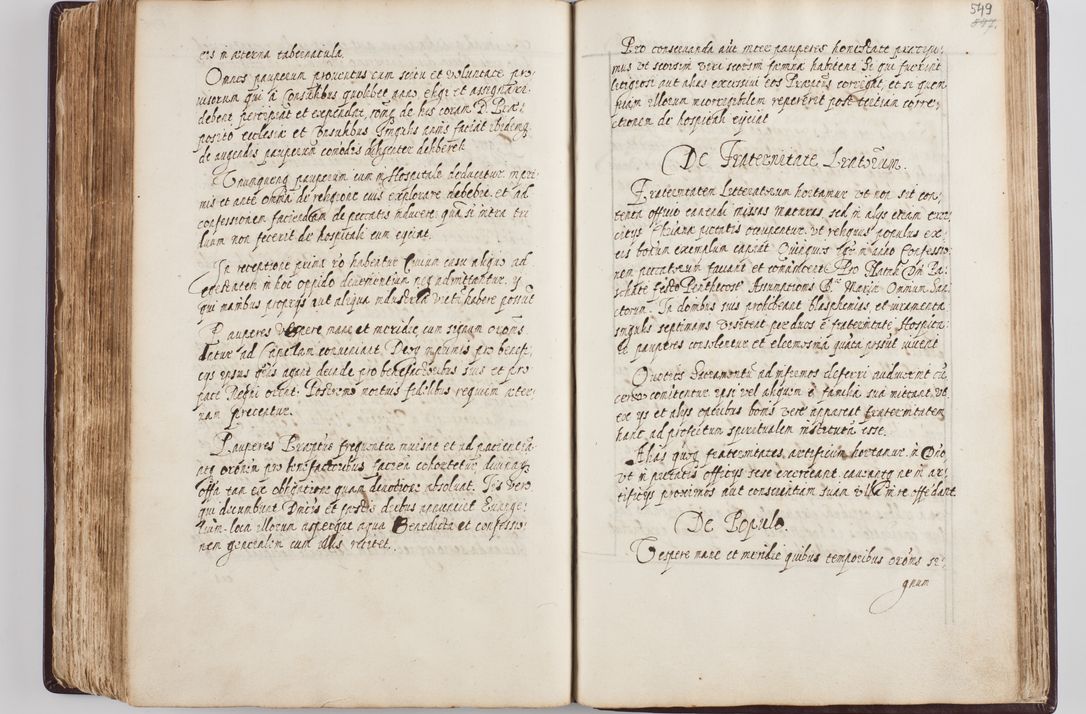 eis in æterna tabernacula.
Omnes pauperum proventus cum scitu et voluntate pro-
visorum qui a Consulibus quolibet anno eligi et assignari
debent percipiat et expendat, de his coram D. Præ-
posito ecclesiæ et Consulibus singulis annis faciat ibidemq
de augendis pauperum comodis diligenter deliberet.
Unumquemq pauperum cum in Hospitale deducetur impri-
mis et ante omnia de religione eius explorare debebit et ad
confessionem faciendam de peccatis inducere quā si intra tri
duum non fecerit de hospitali eum eijciat.
In receptione primā ro habeatur Civium casu aliquo ad
egestatem in hoc oppido devenientium neq admittantur ij
qui manibus proprijs aut aliqua industria victū habere possūt
Pauperes Vespere mane et meridie cum signum oroms
datur ad Capellam conveniant, Deoq inprimis pro benefi-
cijs ipsius agant deinde pro benefactoribus suis et pro
pace Regni orent. Postremo mortuis fidelibus requiem æter-
nam precentur.
Pauperes Præptus frequenter invisat et ad patientia
atq oronem pro benefactoribus facien cohortetur divinaq
offa tam ex obligatione quam devotione absolvat. Jis vero
qui decumbunt Dnicis et festis diebus annunciet Evange-
lium, loca illorum aspergat aqua Benedicta et confessio-
nem generalem cum illis recitet.
549
547.
Pro conservanda aut inter pauperes honestate præcipi-
mus ut seorsim viri seorsim fæminæ habitent Si qui fuerint
litigiosi aut alias excessivi eos Præptus corrigat, et si quem-
piam illorum incorrigibilem repererit post tertiam corre-
ctionem de hospitali eijciat
De Fraternitate Lratorum.
Fraternitatem Litteratorum hortamur ut non sit con-
tenta officio canendi missas maturas, sed in alijs etiam exer
citijs Xtianæ pietatis occupentur, ut reliquus populus ex
eis bonum exemplum capiat Quinquies in anno Confessio-
nem peccatorum faciant et comunicent Pro Natali Dni Pa-
schate festo Penthecost Assumptionis B. Mariæ Omnium San-
ctorum. In domibus suis prohibeant blasphemias, et iuramenta
singulis septimanis visitent per duos e fraternitate Hospicu-
et pauperes consolentur et eleemosina quæcunq possūt iuvent
Quoties Sacramentū ad infirmos deferri audiverint cū
cereis comitentur, vel aliquem e familia sua mittant, ut
ex ijs et alijs operibus bonis vere appareat fraternitatem
hanc ad profectum spiritualem institutā esse.
Alias quoq fraternitates artificum hortamur in Dno
ut in pietatis officijs sese exerceant, caveantq ne in ar-
tificijs proximos aut conscientiam suam ulla in re offēdant
De Populo.
Vespere mane et meridie quibus temporibus oroms si-
gnum